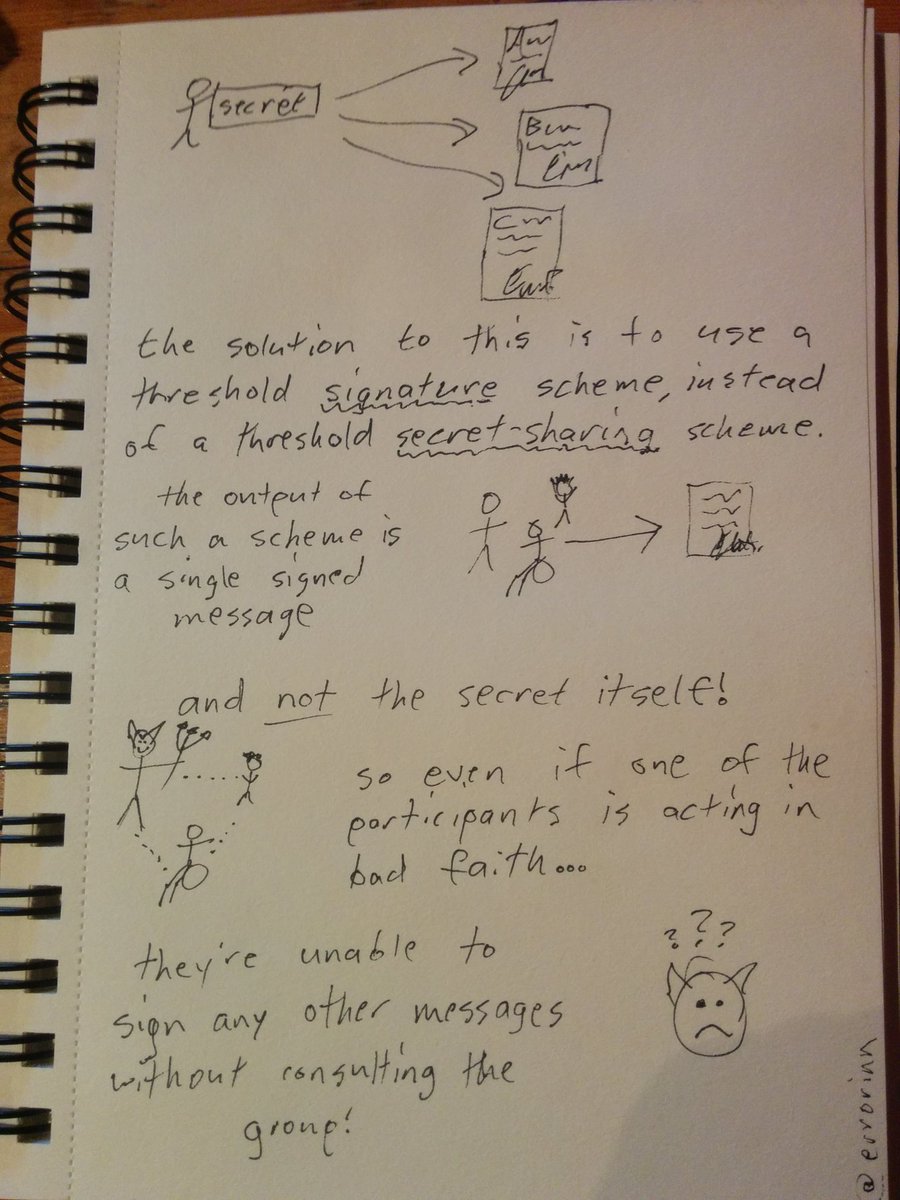 secret
A
B
C
the solution to this is to use a
threshold signature scheme, instead
of a threshold secret-sharing scheme.
the output of
such a scheme is
a single signed
message
and not the secret itself!
so even if one of the
participants is acting in
bad faith...
they're unable to
sign any other messages
without consulting the
group!
? ? ?
@errorinn